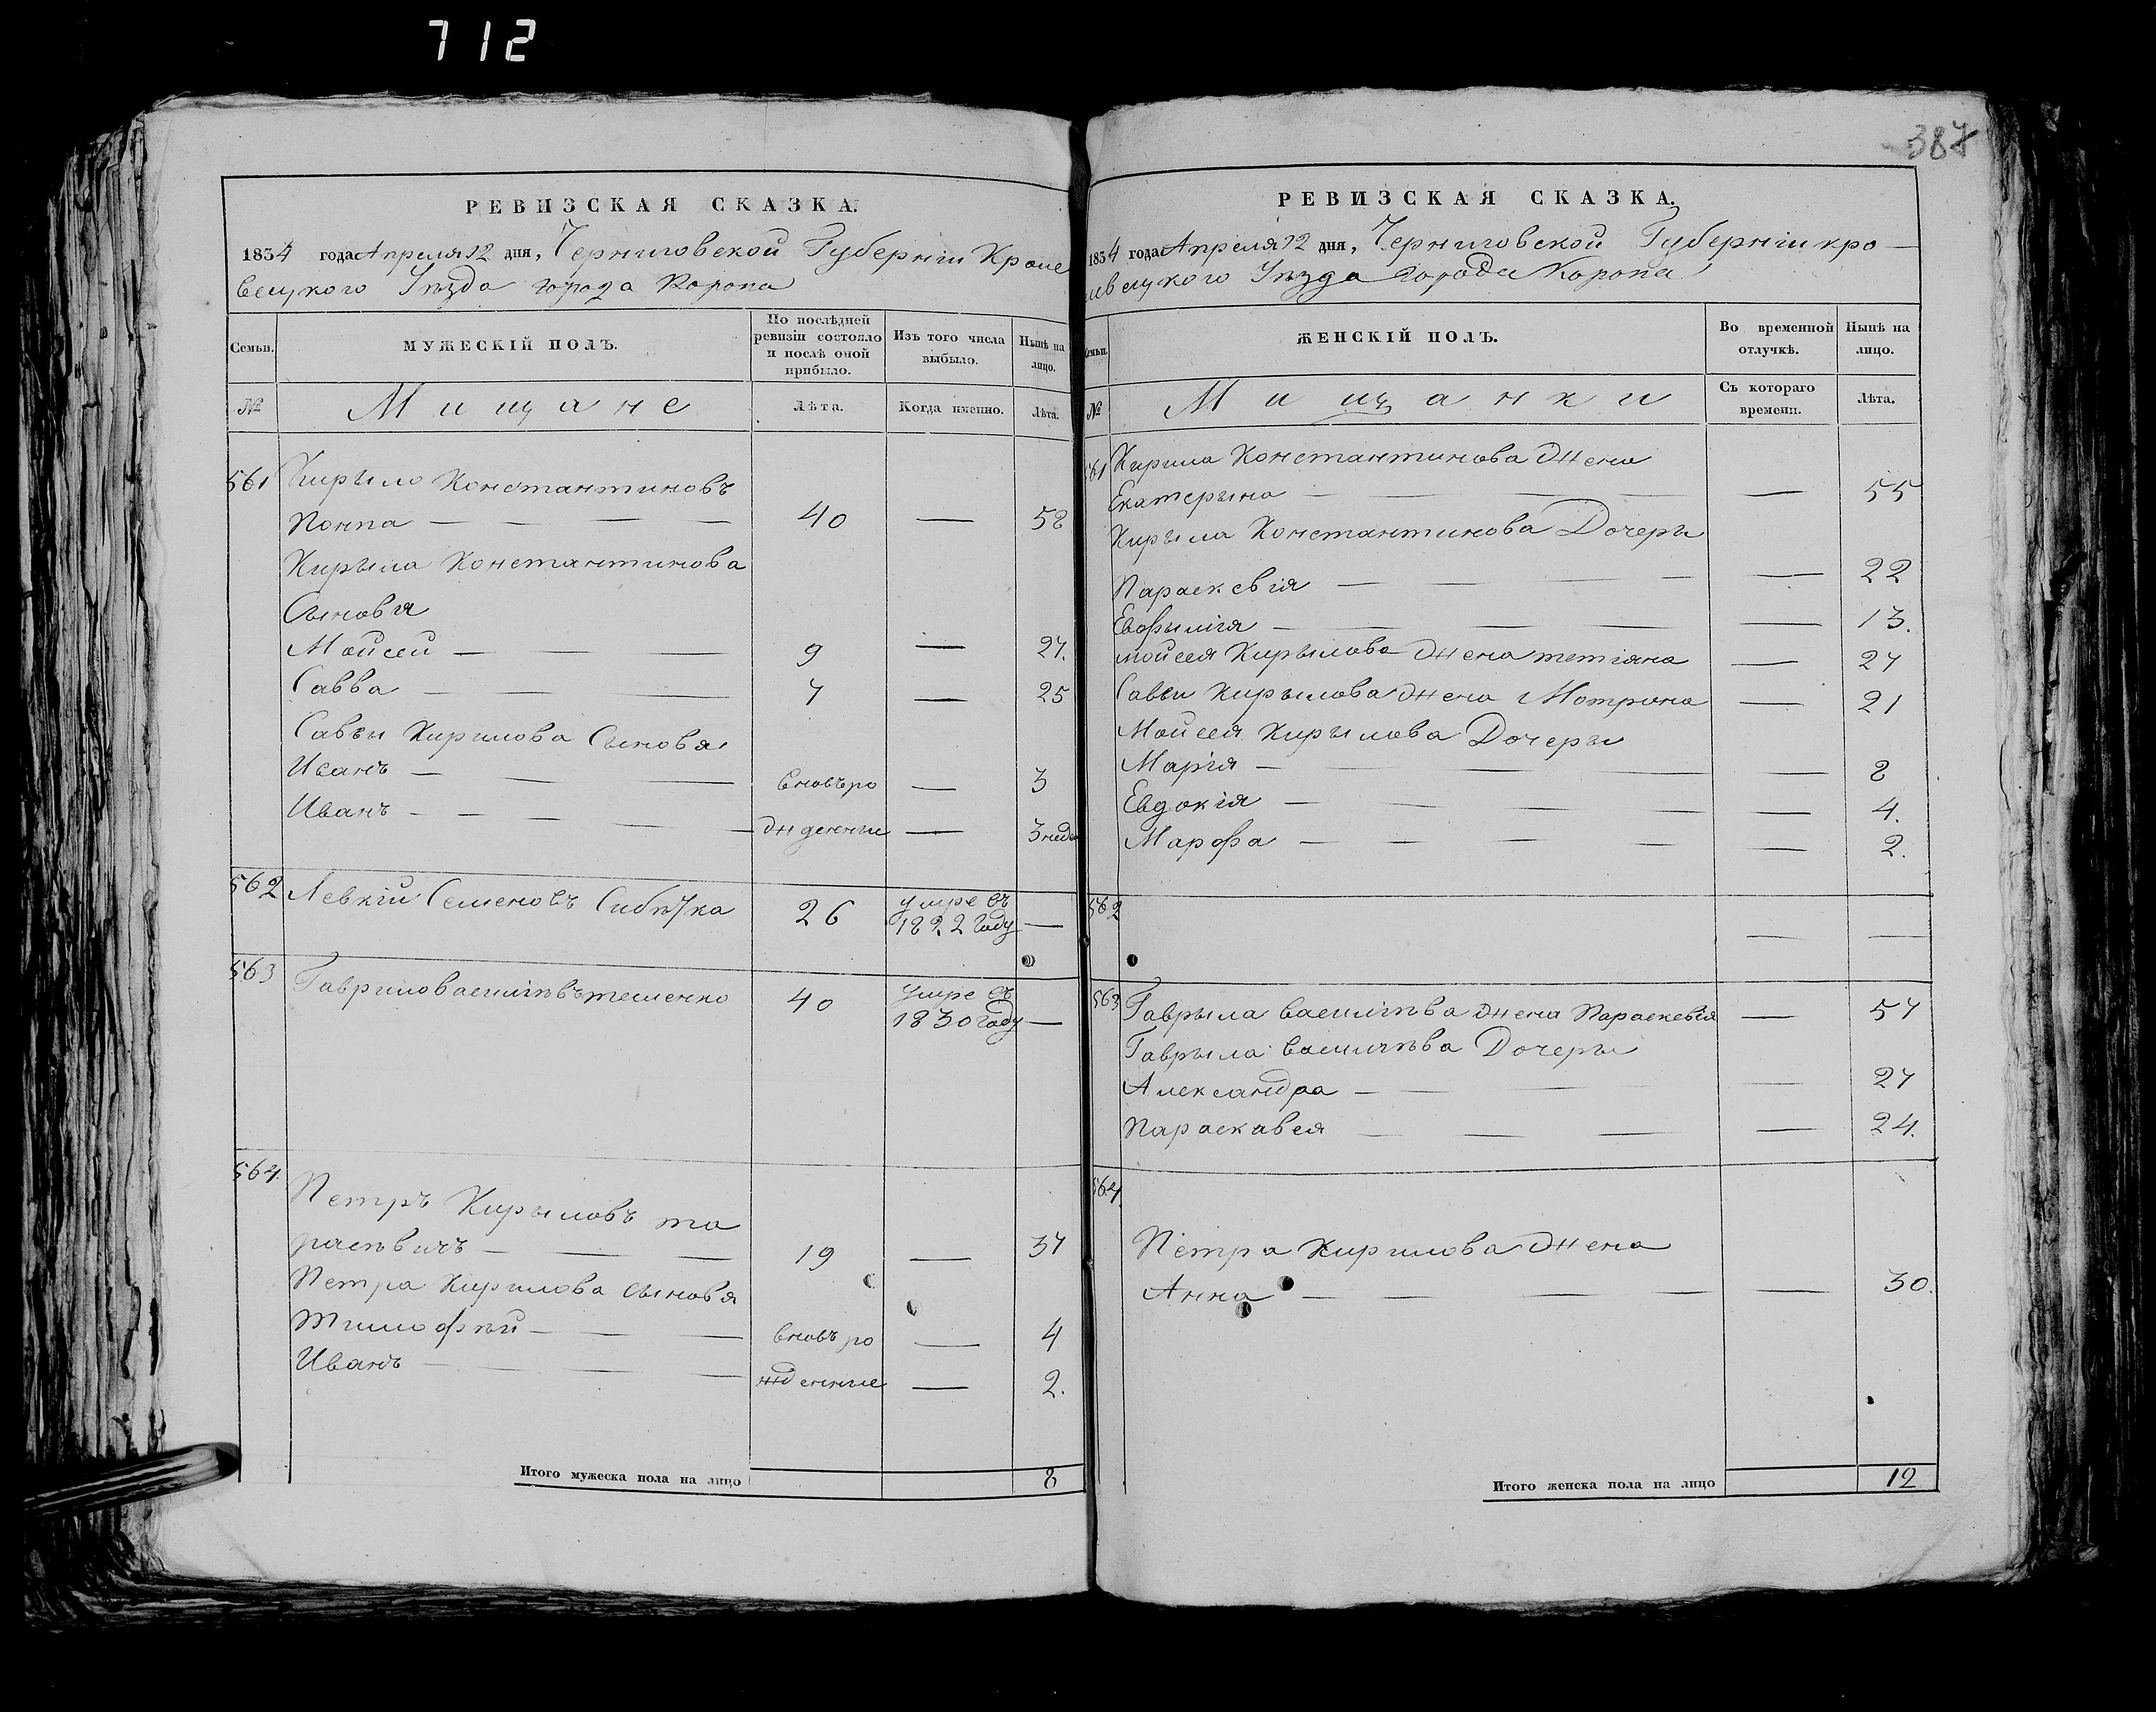 712
387
РЕВИЗСКАЯ СКАЗКА.
1834 года Апреля 12 дня, Черниговской Губерніи Кроле
вецкого Уѣзда города Коропа
Семьи. МУЖЕСКІЙ ПОЛЪ. По послѣдней ревизіи состояло и послѣ оной прибыло. Изъ того числа выбыло. Нынѣ на лицо.
№ Мищане Лѣта. Когда именно. Лѣта.
561 Кирыло Константиновъ
Конпа — 40 — 58
Кирыла Константинова
Сыновя
Мойсей — 9 — 27.
Савва — 7 — 25
Саввы Кирилова Сыновя
Иванъ — вновьро — 3
Иванъ — жденные — 3 неде
562 Левкій Семеновъ 26 умре въ
1822 Году —
563 Гаврило василѣвъ тешенко 40 умре въ
1830 Году —
564. Петръ Кирыловъ та
расѣвичъ — 19 — 37
Петра Кирилова сыновя
Тимофѣй — вновьро — 4
Иванъ — жденные — 2.
Итого мужеска пола на лицо 8
РЕВИЗСКАЯ СКАЗКА.
1834 года Апреля 12 дня, Черниговской Губерніи кро—
левецкого Уѣзда города Коропа
Семьи. ЖЕНСКІЙ ПОЛЪ. Во временной отлучкѣ. Нынѣ на лицо.
№ Мищанки Съ котораго времени. Лѣта.
561 Кирила Константинова жена
Екатерына — — 55
Кирыла Константинова Дочеры
Параскевія — — 22
Евфымія — — 13.
мойсея Кирылова жена тетіяна — 27
Саввы Кирылова жена Мотрона — 21
Мойсея Кирылова Дочеры
Марія — — 8
Евдокія — — 4.
Марфа — — 2.
562 — —
563 Гаврыла василѣва жена Параскевія — 57
Гаврыла василѣва Дочеры
Александра — — 27
Параскавея — — 24.
564 Петра Кирилова жена
Анна — — 30.
Итого женска пола на лицо 12